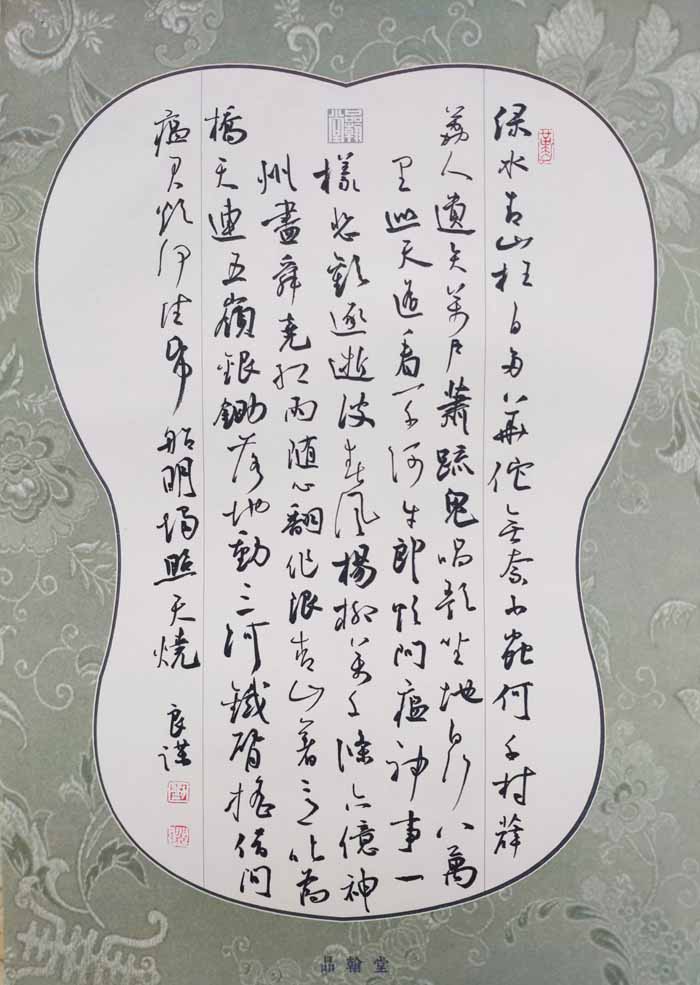 绿水青山枉自多華佗无奈小蟲何千村薜
荔人遗矢萬户蕭疏鬼唱歌坐地日行八萬
里巡天遥看一千河牛郎欲问瘟神事一
樣悲歡逐逝波春风楊柳萬千條六億神
州盡舜尧红雨随心翻作浪青山着意化为
橋天連五嶺銀鋤落地動三河鐵臂摇借问
瘟君欲何往帋船明燭照天燒
良谋
品翰堂